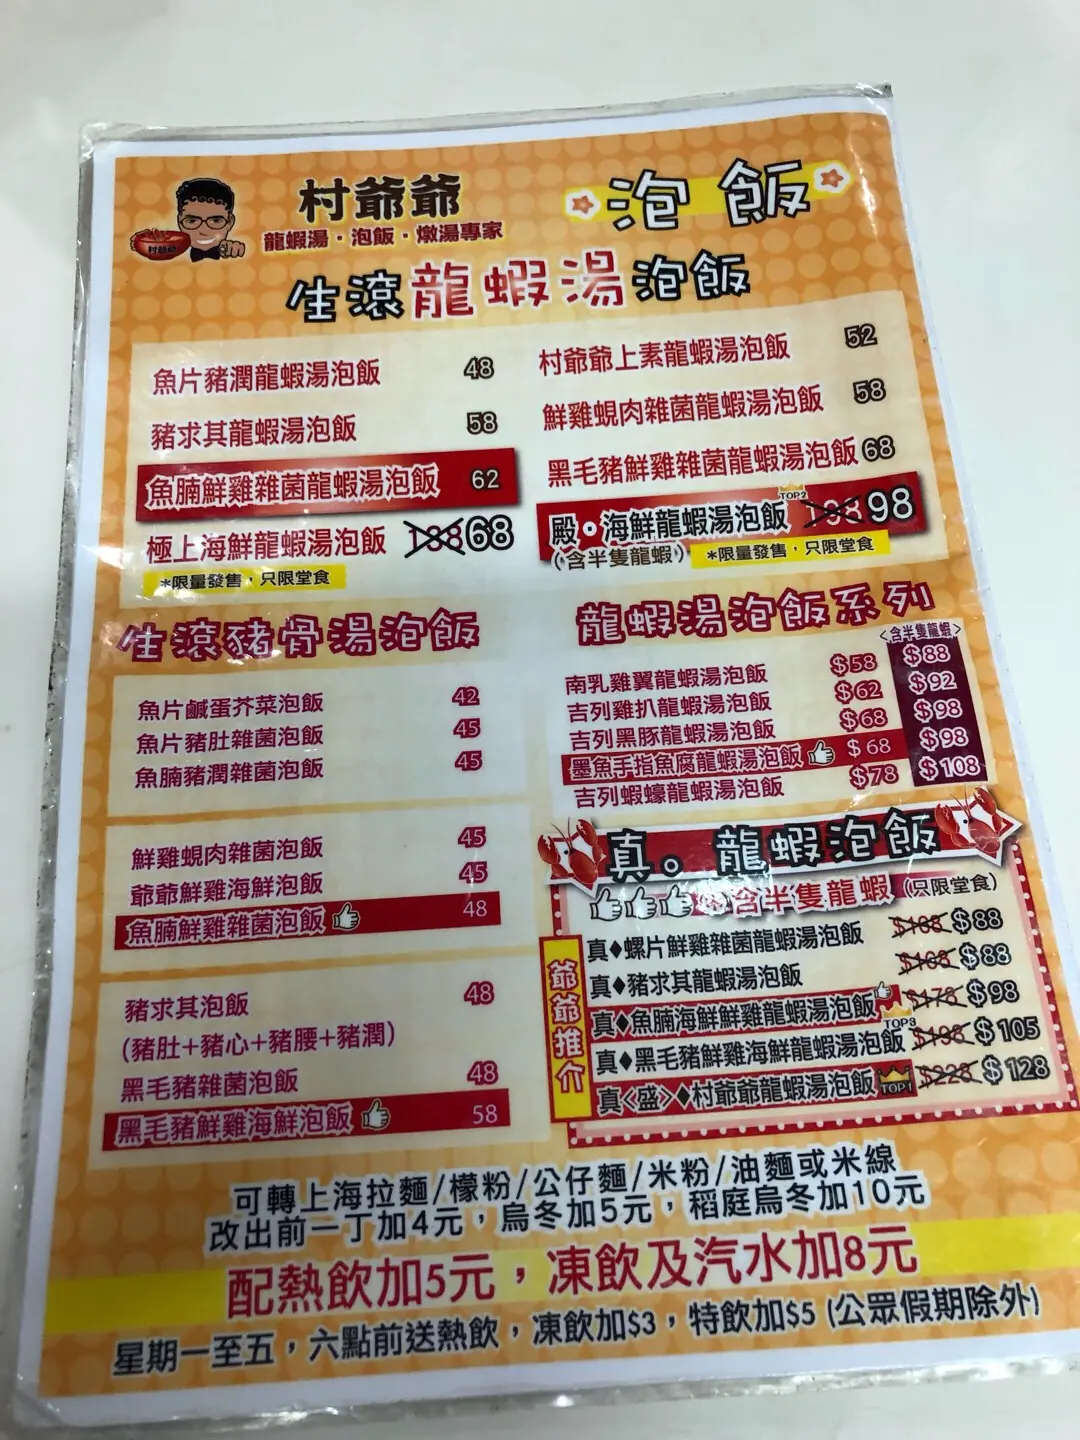 村爺爺
龍蝦湯·泡飯·燉湯專家
村爺爺
泡飯
生滾龍蝦湯泡飯
魚片豬潤龍蝦湯泡飯 48
豬求其龍蝦湯泡飯 58
魚腩鮮雞雜菌龍蝦湯泡飯 62
極上海鮮龍蝦湯泡飯 68
*限量發售，只限堂食
村爺爺上素龍蝦湯泡飯 52
鮮雞蜆肉雜菌龍蝦湯泡飯 58
黑毛豬鮮雞雜菌龍蝦湯泡飯 68
TOP2
殿·海鮮龍蝦湯泡飯 98
(含半隻龍蝦) *限量發售，只限堂食
生滾豬骨湯泡飯
魚片鹹蛋芥菜泡飯 42
魚片豬肚雜菌泡飯 45
魚腩豬潤雜菌泡飯 45
鮮雞蜆肉雜菌泡飯 45
爺爺鮮雞海鮮泡飯 45
魚腩鮮雞雜菌泡飯 48
豬求其泡飯 48
(豬肚+豬心+豬腰+豬潤)
黑毛豬雜菌泡飯 48
黑毛豬鮮雞海鮮泡飯 58
龍蝦湯泡飯系列
<含半隻龍蝦>
南乳雞翼龍蝦湯泡飯 $58 $88
吉列雞扒龍蝦湯泡飯 $62 $92
吉列黑豚龍蝦湯泡飯 $68 $98
墨魚手指魚腐龍蝦湯泡飯 $68 $98
吉列蝦蠔龍蝦湯泡飯 $78 $108
真。龍蝦泡飯
含半隻龍蝦 (只限堂食)
爺爺推介
真♦螺片鮮雞雜菌龍蝦湯泡飯 $168 $88
真♦豬求其龍蝦湯泡飯 $168 $88
真♦魚腩海鮮鮮雞龍蝦湯泡飯 $178 $98
TOP3
真♦黑毛豬鮮雞海鮮龍蝦湯泡飯 $198 $105
真<盛>♦村爺爺龍蝦湯泡飯 TOP1 $228 $128
可轉上海拉麵/檬粉/公仔麵/米粉/油麵或米線
改出前一丁加4元，烏冬加5元，稻庭烏冬加10元
配熱飲加5元，凍飲及汽水加8元
星期一至五，六點前送熱飲，凍飲加$3，特飲加$5 (公眾假期除外)